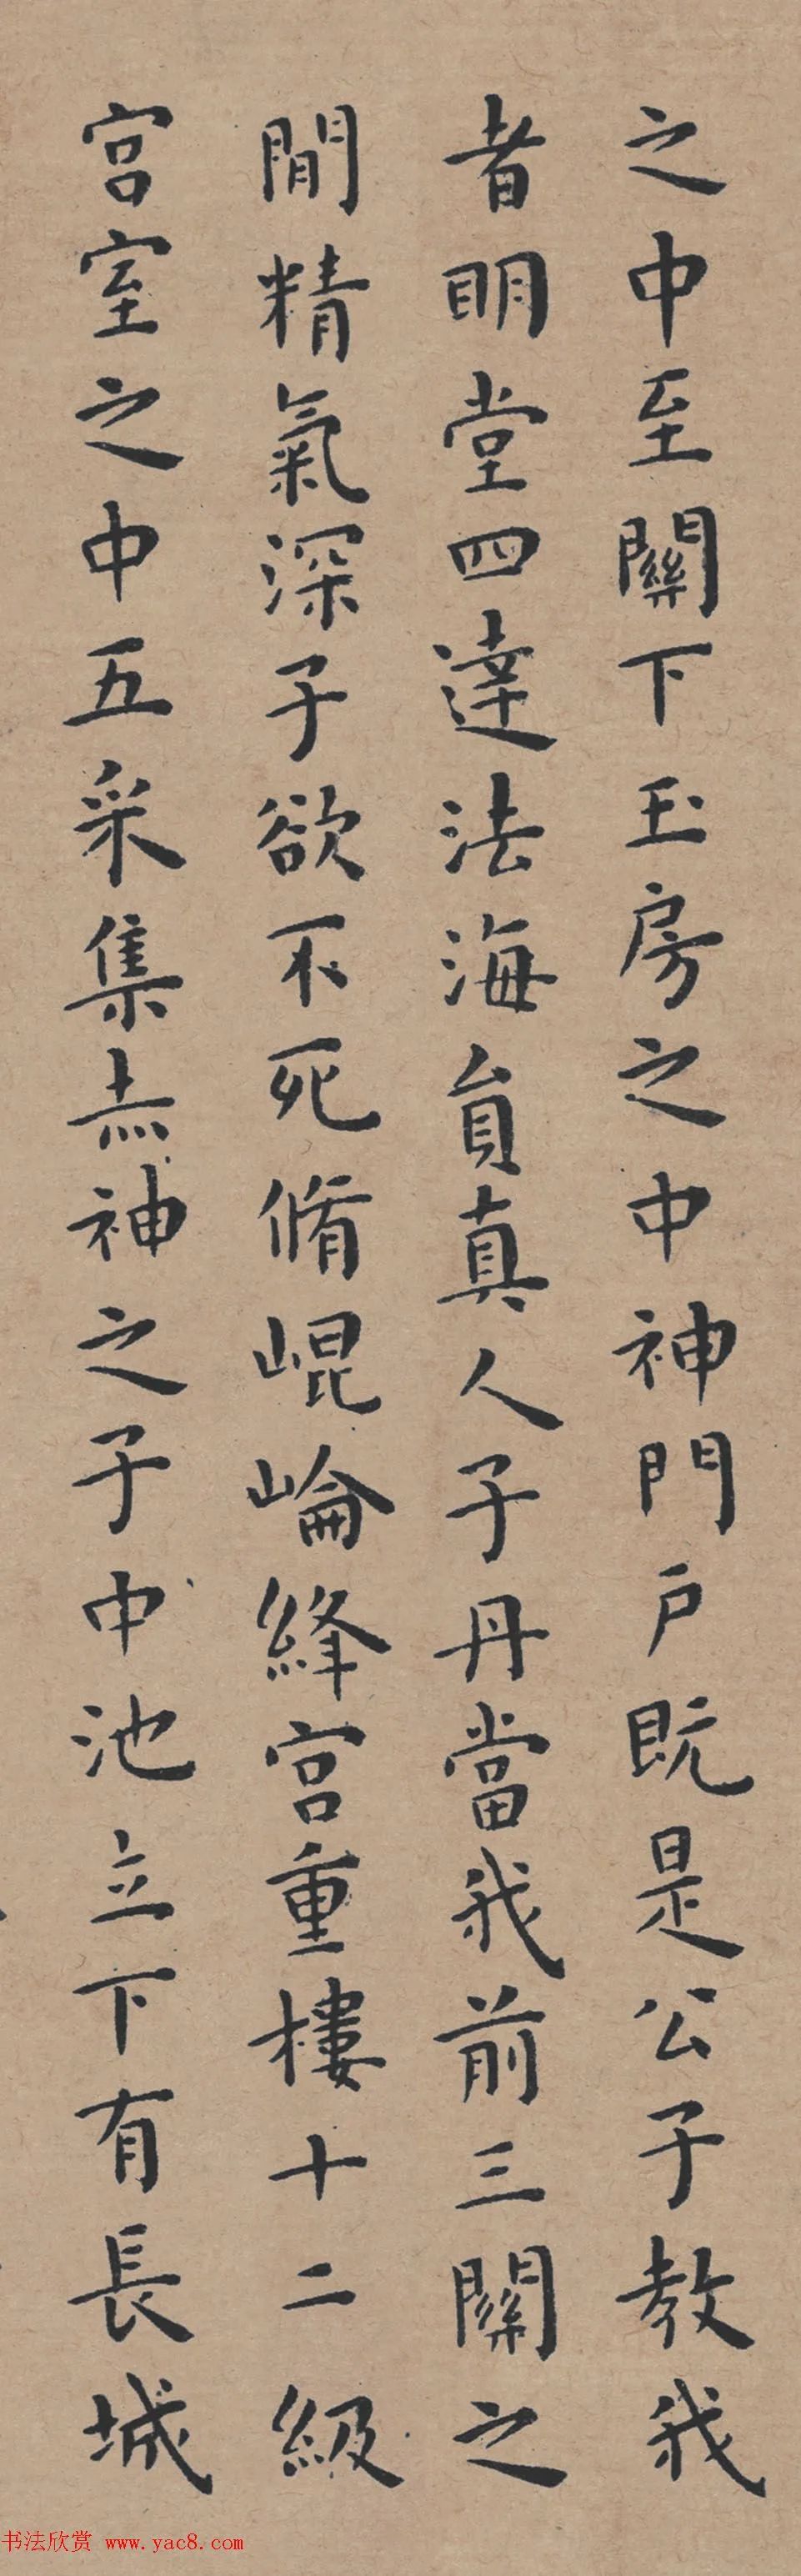 之中至關下玉房之中神門户既是公子教我
者明堂四達法海貟真人子丹當我前三關之
間精氣深子欲不死脩崐崘絳宫重樓十二級
宫室之中五采集赤神之子中池立下有長城
书法欣赏 www.yac8.com